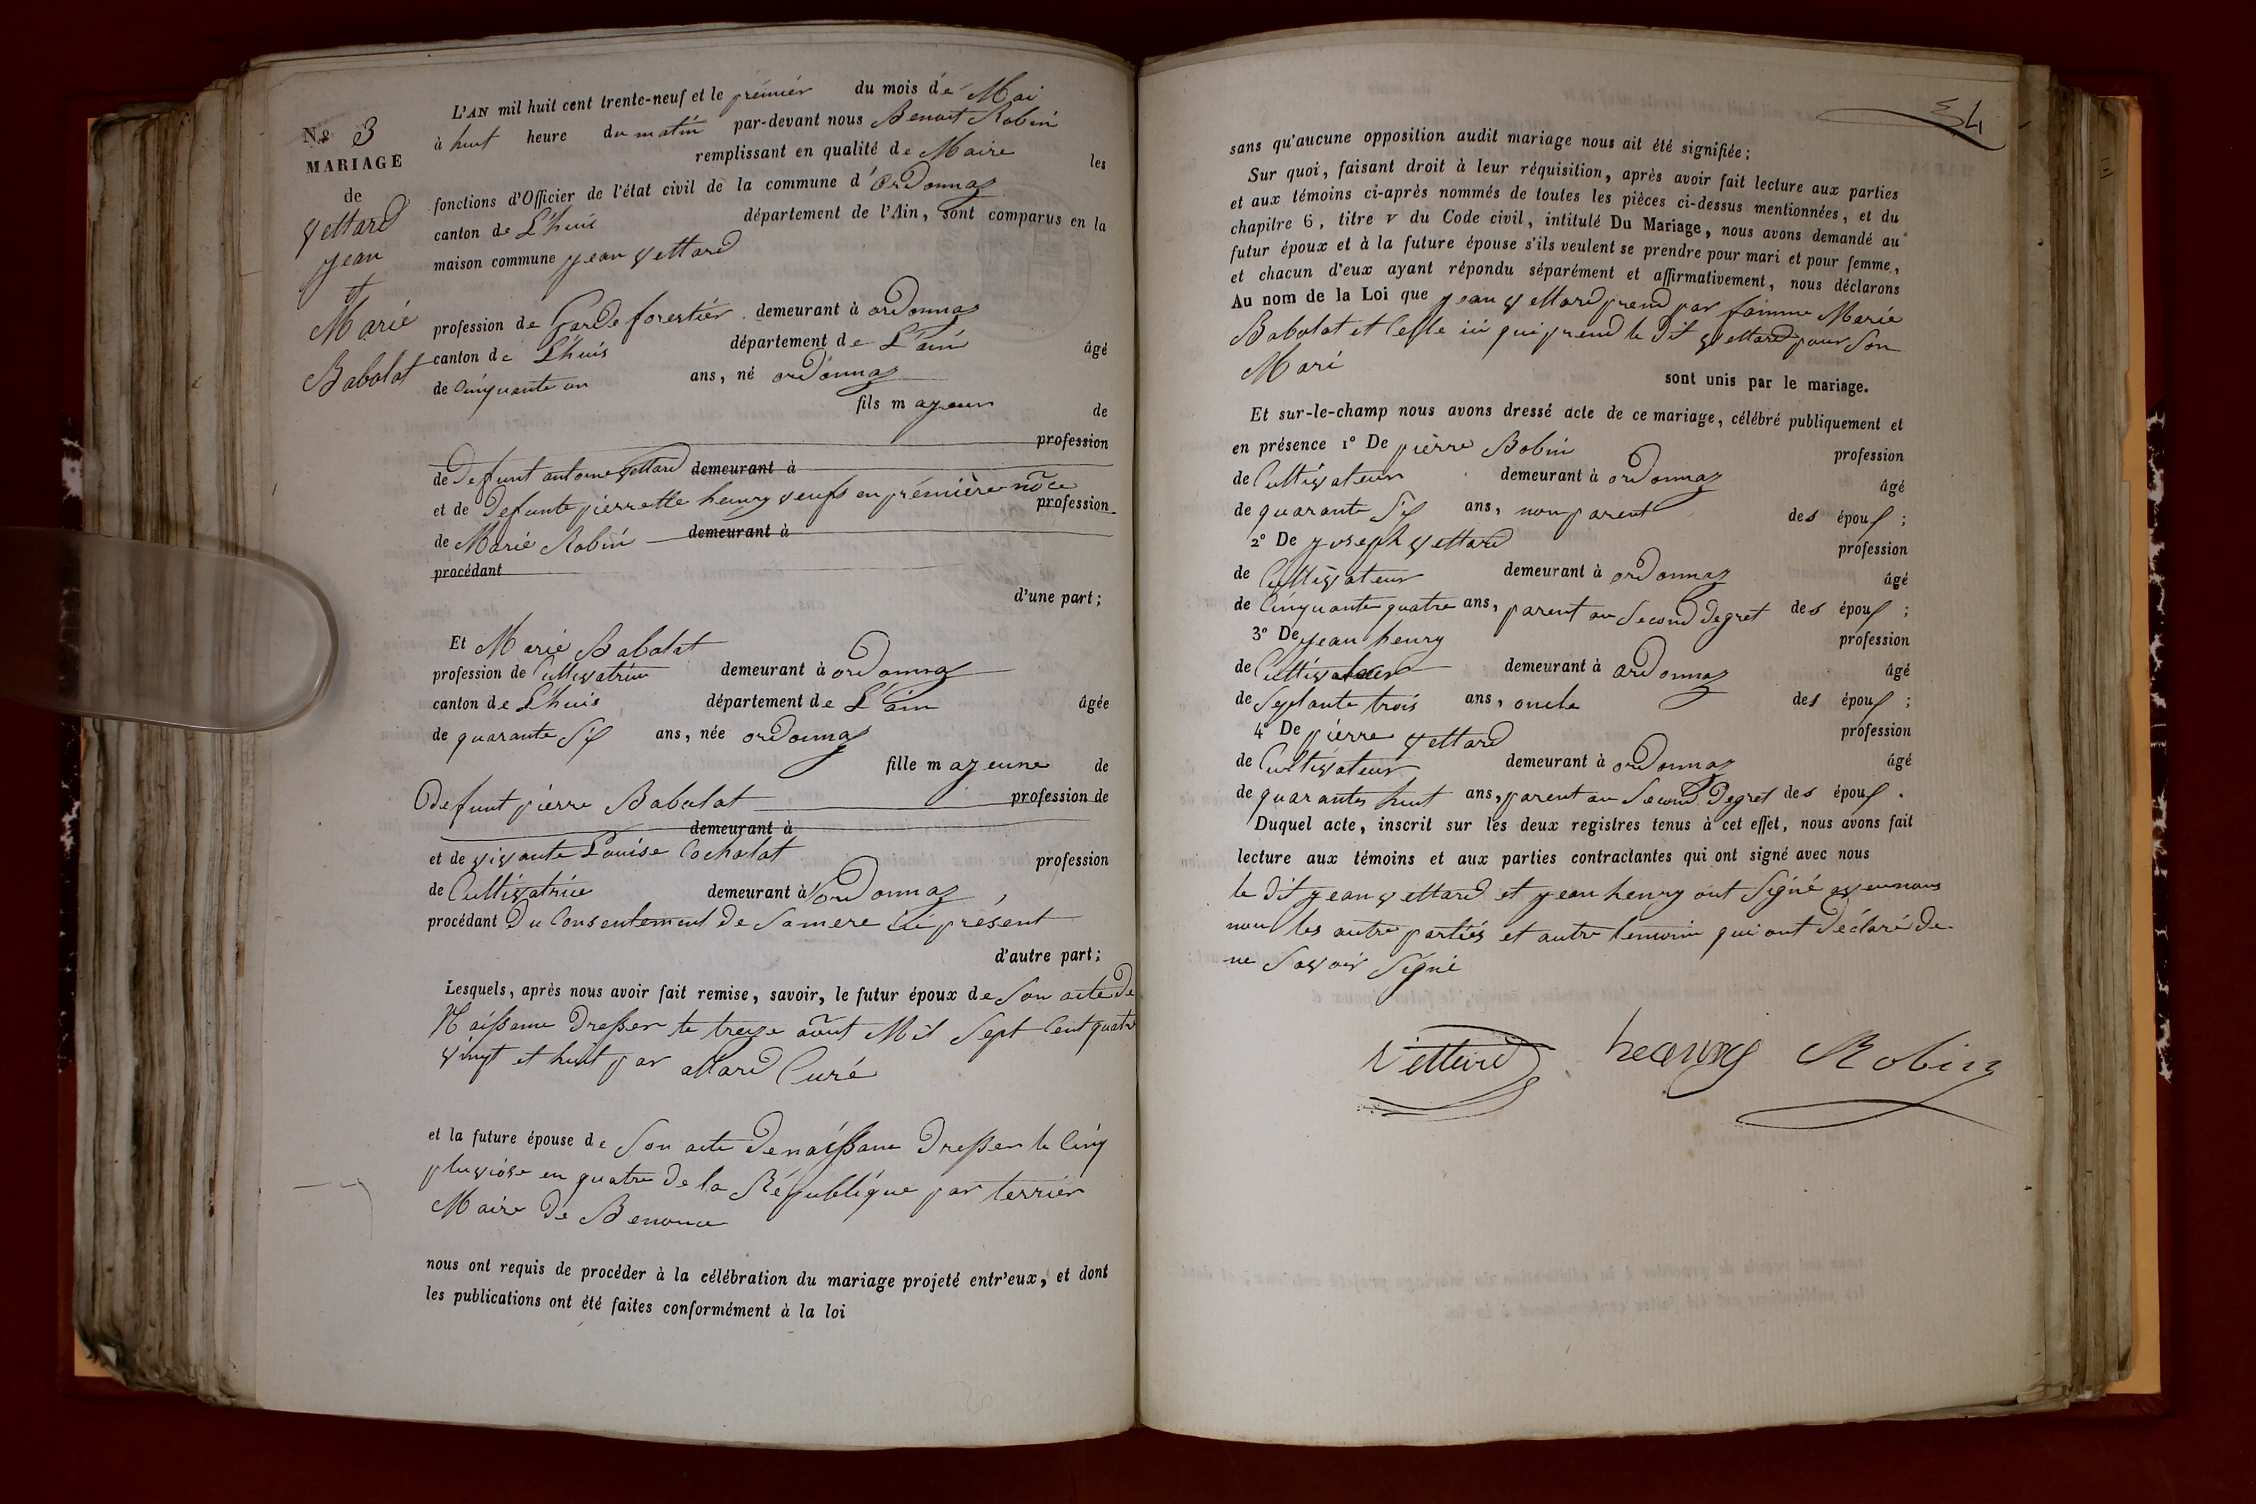 N.º 3
MARIAGE
de
Vettard
Jean
et
Marie
Babolat
L'AN mil huit cent trente-neuf et le prémiér du mois de Mai
à huit heure du matin par-devant nous Benoit Robin
remplissant en qualité de Maire les
fonctions d'Officier de l'état civil de la commune d'ordonnaz
canton de L'huis département de l'Ain, sont comparus en la
maison commune Jean Vettard
profession de Garde forestiér demeurant à ordonnaz
canton de L'huis département de L'ain âgé
de Cinquante un ans, né ordonnaz
fils mayeur de
profession
de Defunt antoine Vettard demeurant à
et de Defunte pierrette henry veufs en prémière nôce profession
de Marie Robin demeurant à
procédant
d'une part;
Et Marie Babolat
profession de Cultivatrice demeurant à ordonnaz
canton de L'huis département de L'ain âgée
de quarante Six ans, née ordonnaz
fille mayeure de
Defunt pierre Babolat profession de
demeurant à
et de vivante Louise Cocholat profession
de Cultivatrice demeurant à ordonnaz
procédant Du Consentement de Sa mere ici présent
d'autre part;
Lesquels, après nous avoir fait remise, savoir, le futur époux de Son acte De
Naissance Dresser le treze août Mil Sept Cent quatre
vingt et huit par allard Curé
et la future épouse de Son acte De naissance Dresser le Cinq
pluviôse en quatre De la République par terrier
Maire De Benonce
nous ont requis de procéder à la célébration du mariage projeté entr'eux, et dont
les publications ont été faites conformément à la loi
34
sans qu'aucune opposition audit mariage nous ait été signifiée;
Sur quoi, faisant droit à leur réquisition, après avoir fait lecture aux parties
et aux témoins ci-après nommés de toutes les pièces ci-dessus mentionnées, et du
chapitre 6, titre v du Code civil, intitulé Du Mariage, nous avons demandé au
futur époux et à la future épouse s'ils veulent se prendre pour mari et pour femme,
et chacun d'eux ayant répondu séparément et affirmativement, nous déclarons
Au nom de la Loi que Jean Vettard prend par famme Marie
Babolat et Celle ici qui prend le Dit Vettard pour Son
Mari
sont unis par le mariage.
Et sur-le-champ nous avons dressé acte de ce mariage, célébré publiquement et
en présence 1º De pièrre Bobin profession
de Cultivateur demeurant à ordonnaz âgé
de quarante Six ans, non parent des époux;
2º De Joseph Vettard profession
de Cultivateur demeurant à ordonnaz âgé
de Cinquante quatre ans, parent au Second Degret des époux;
3º De Jean henry profession
de Cultivateur demeurant à ordonnaz âgé
de Septante trois ans, oncle des époux;
4º De pièrre Vettard profession
de Cultivateur demeurant à ordonnaz âgé
de quarante huit ans, parent au Second Degret des époux.
Duquel acte, inscrit sur les deux registres tenus à cet effet, nous avons fait
lecture aux témoins et aux parties contractantes qui ont signé avec nous
le Dit Jean Vettard et Jean henry ont Signé avec nous
non les autre partiés et autre temoin qui ont Déclaré De
ne Savoir Signé
Vettard henry Robin